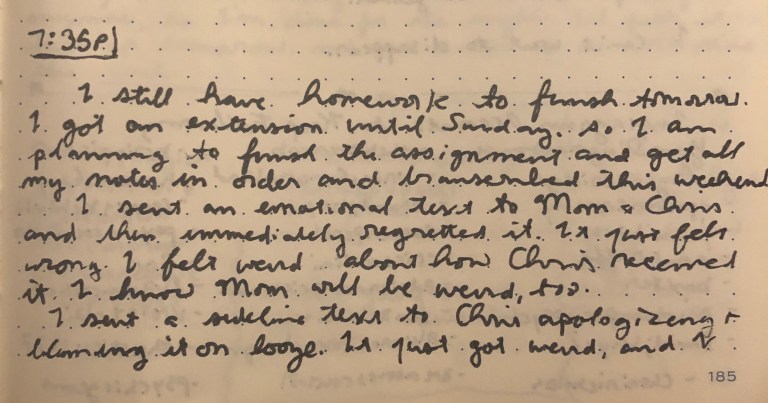 7:35p
I still have homework to finish tomorrow.
I got an extension until Sunday. so I am
planning to finish the assignment and get all
my notes in order and transcribed this weekend
I sent an emotional text to Mom & Chris
and then immediately regretted it. It just felt
wrong. I felt weird about how Chris received
it. I know Mom will be weird, too.
I sent a sideline text to Chris apologizing +
blaming it on booze. It just got weird, and I
185